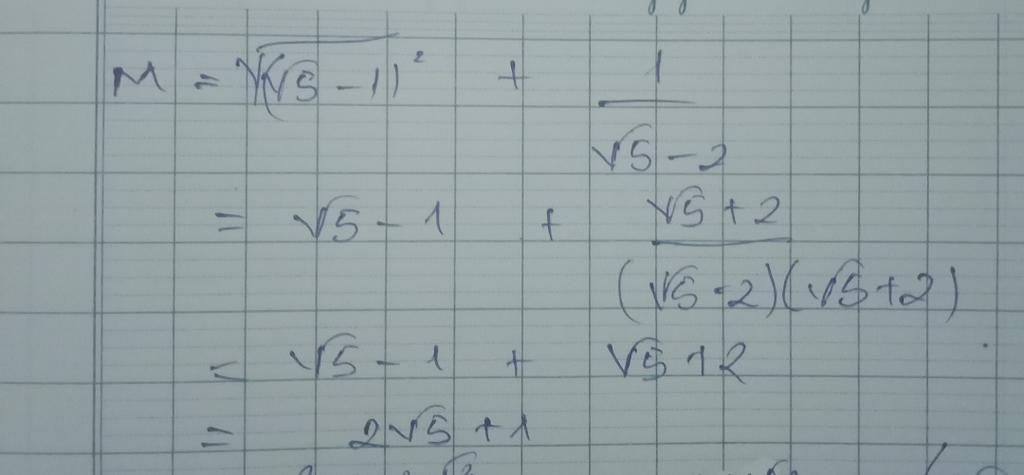 M = √(√5 - 1)² + 1/(√5 - 2)
= √5 - 1 + (√5 + 2)/((√5 - 2)(√5 + 2))
= √5 - 1 + √5 + 2
= 2√5 + 1